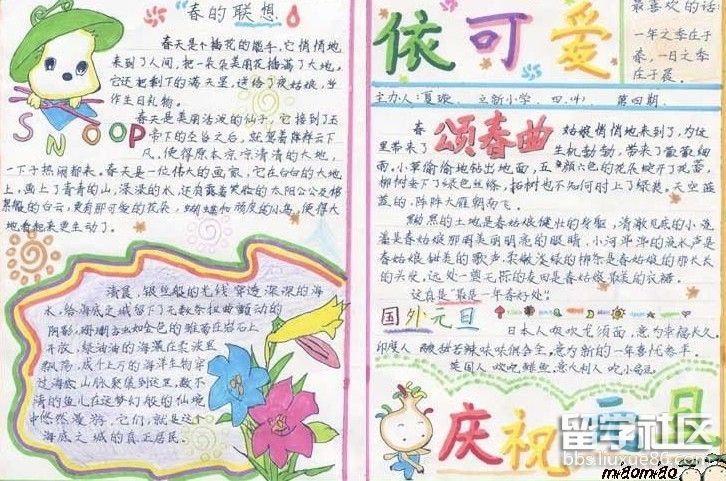 “春的联想”
春天是个插花的能手,它悄悄地
来到了人间,把一朵朵美丽花插满了大地,
它还把剩下的满天星,送给了夜姑娘,当
作生日礼物。
春天是美丽活波的仙子,它接到了玉
帝下的圣旨之后,就
下凡,使得原本凉凉清清的大地,
一下子热闹起来。春天是一位伟大的画家,它在白白的大地
上,画上了青青的山,深深的水,还有露着笑脸的太阳公公及棉
的白云,更有那可爱的花朵,蝴蝶和顽皮的小鸟,使得大
地看起来更生动了。
SNOOP
清晨,银丝般的光线穿透深深的海
水,给海底之城留下了无数条扭曲颤动的
阴影,珊瑚古如金色的雏菊在岩石上
开放,绿油油的海藻在柔波里
飘荡,成千上万的海洋生物穿
过海底山脉聚集到这里,数不
清的鱼儿在这梦幻般的仙境
中悠然漫游,它们,就是这个
海底之城的真正居民。
依可爱
最喜欢的话:
一年之季庄于
春,一日之季
庄于晨。
主办人:夏璇 立新小学 四、 第四期
颂春曲
春 姑娘悄悄地来到了,为这
里带来了 生机勃勃,带来了蒙蒙细
雨。小草偷偷地钻出地面,五 颜六色的花朵绽开了花蕾,
柳树垂下了绿色丝绦,柘树也不知何时上了绿装。天空蓝
蓝的,阵阵大雁朝南飞。
黝黑的土地是春姑娘健壮的身躯,清澈见底的小
是春姑娘那明美丽明亮的眼睛,小河 的流水声是
春姑娘甜美的歌声,柔嫩淡绿的柳条是春姑娘的那长长
的头发,远处一望无际的麦田是春姑娘最美的衣裙。
这真是“最是一年春好处”。
国外元旦
日本人吹吹龙须面,意为福禄长久,
印度人 酸甜苦辣味味俱全全,意为新的一年喜忧参半。
英国人 吹吃鲜鱼,意大利人 吃小扁豆。
庆祝元旦
留学社区
bbs.liuxue86.com
miaomiao